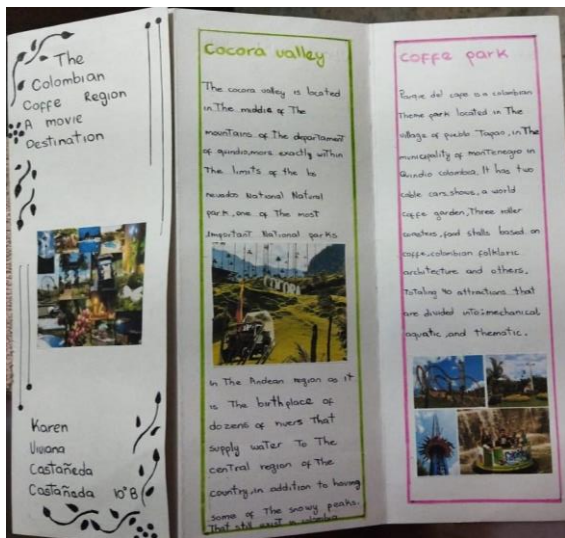 The
Colombian
Coffe Region
A movie
Destination
Karen
Viviana
Castañeda
Castañeda 10°B
Cocora valley
The cocora valley is located
in The middle of The
mountains of the departament
of quindio, more exactly within
The limits of the los
nevados National Natural
park, one of The most
important National parks
COCORA
in The Andean region as it
is The birthplace of
dozens of rivers That
supply water To The
central region of The
country, in addition to having
some of The snowy peaks.
That still exist in colombia
Coffe park
Parque del cafe is a colombian
Theme park located in The
village of pueblo Tapao, in The
municipality of montenegro in
Quindio colombia. It has two
cable cars, shows, a world
coffe garden, Three roller
coasters, food stalls based on
coffe, colombian folkloric
architecture and others.
Totaling 40 attractions that
are divided into: mechanical
aquatic and thematic.